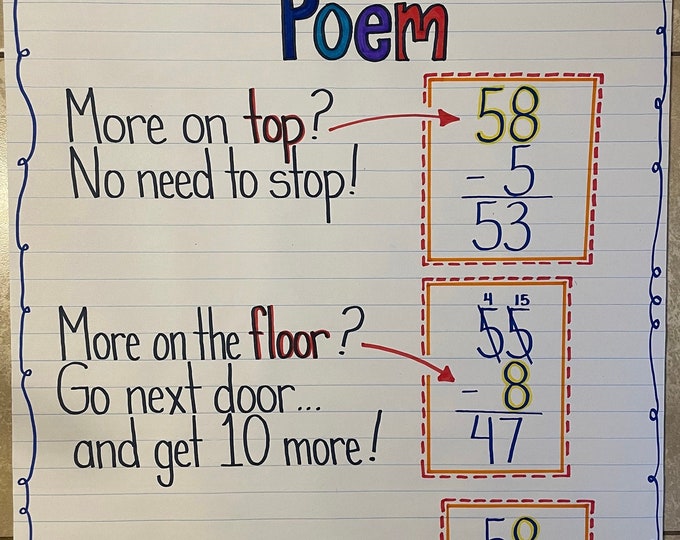 Poem
More on top?
No need to stop!
58
- 5
53
More on the floor?
Go next door...
and get 10 more!
4 15
55
- 8
47
58